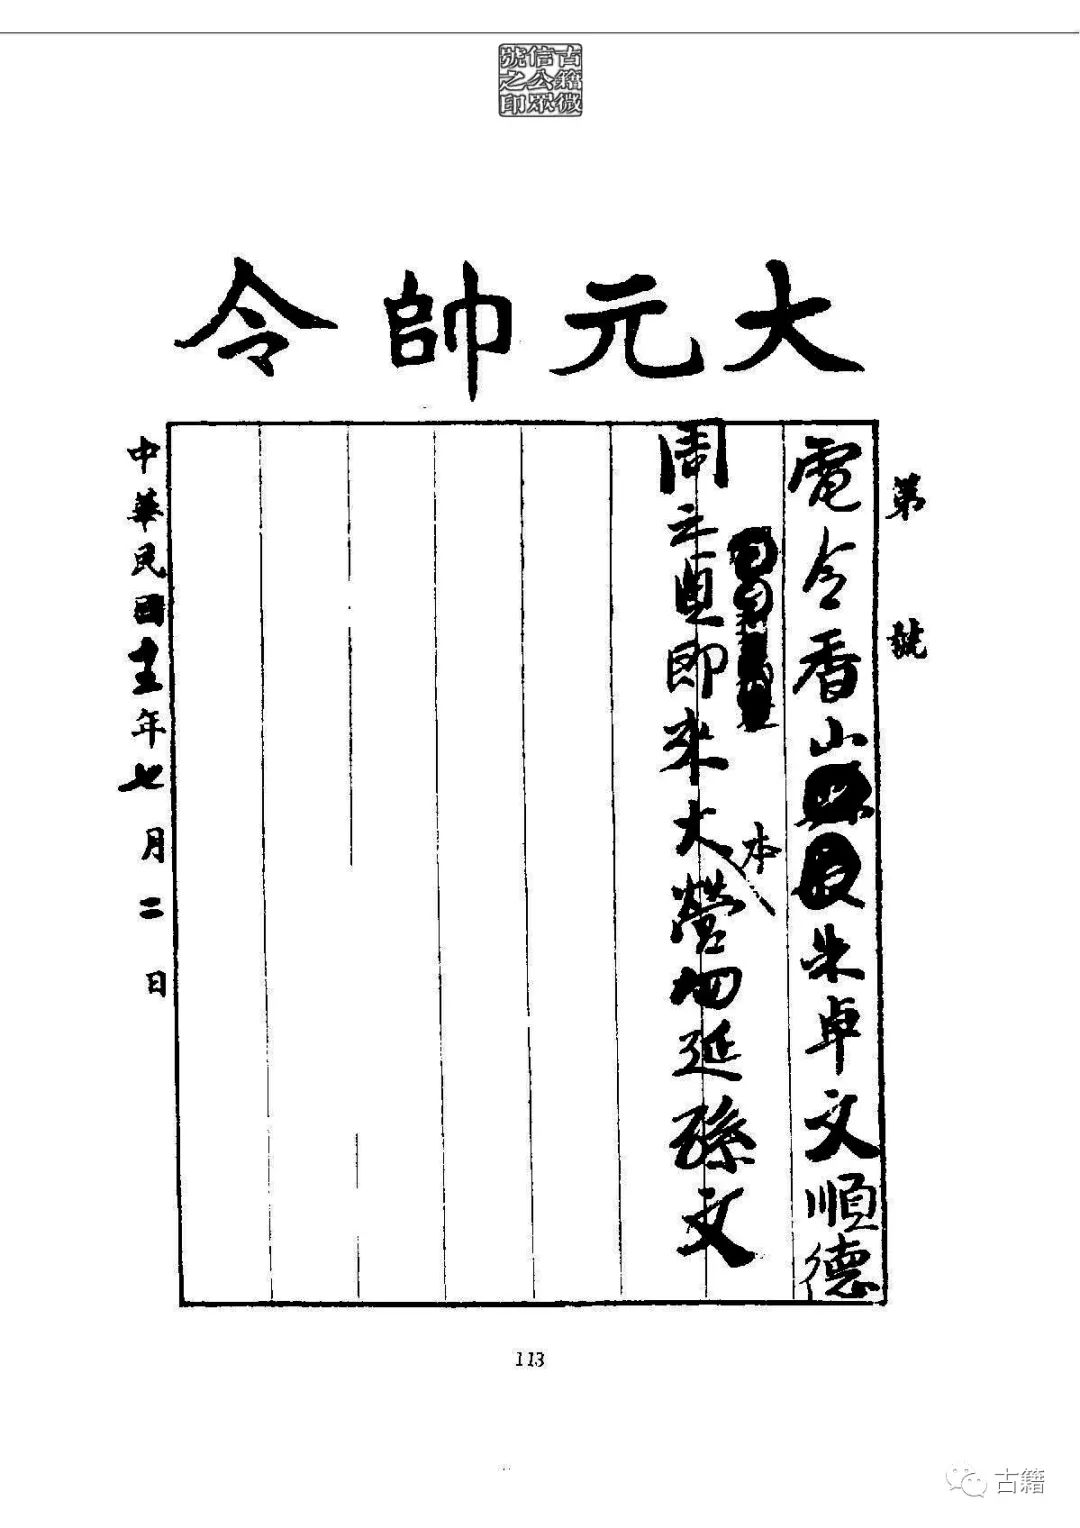 古籍微
信公眾
號之印
大元帥令
第 號
電令香山朱卓文順德
周之貞即來大本營勿延孫文
中華民國十二年七月二日
113
古籍